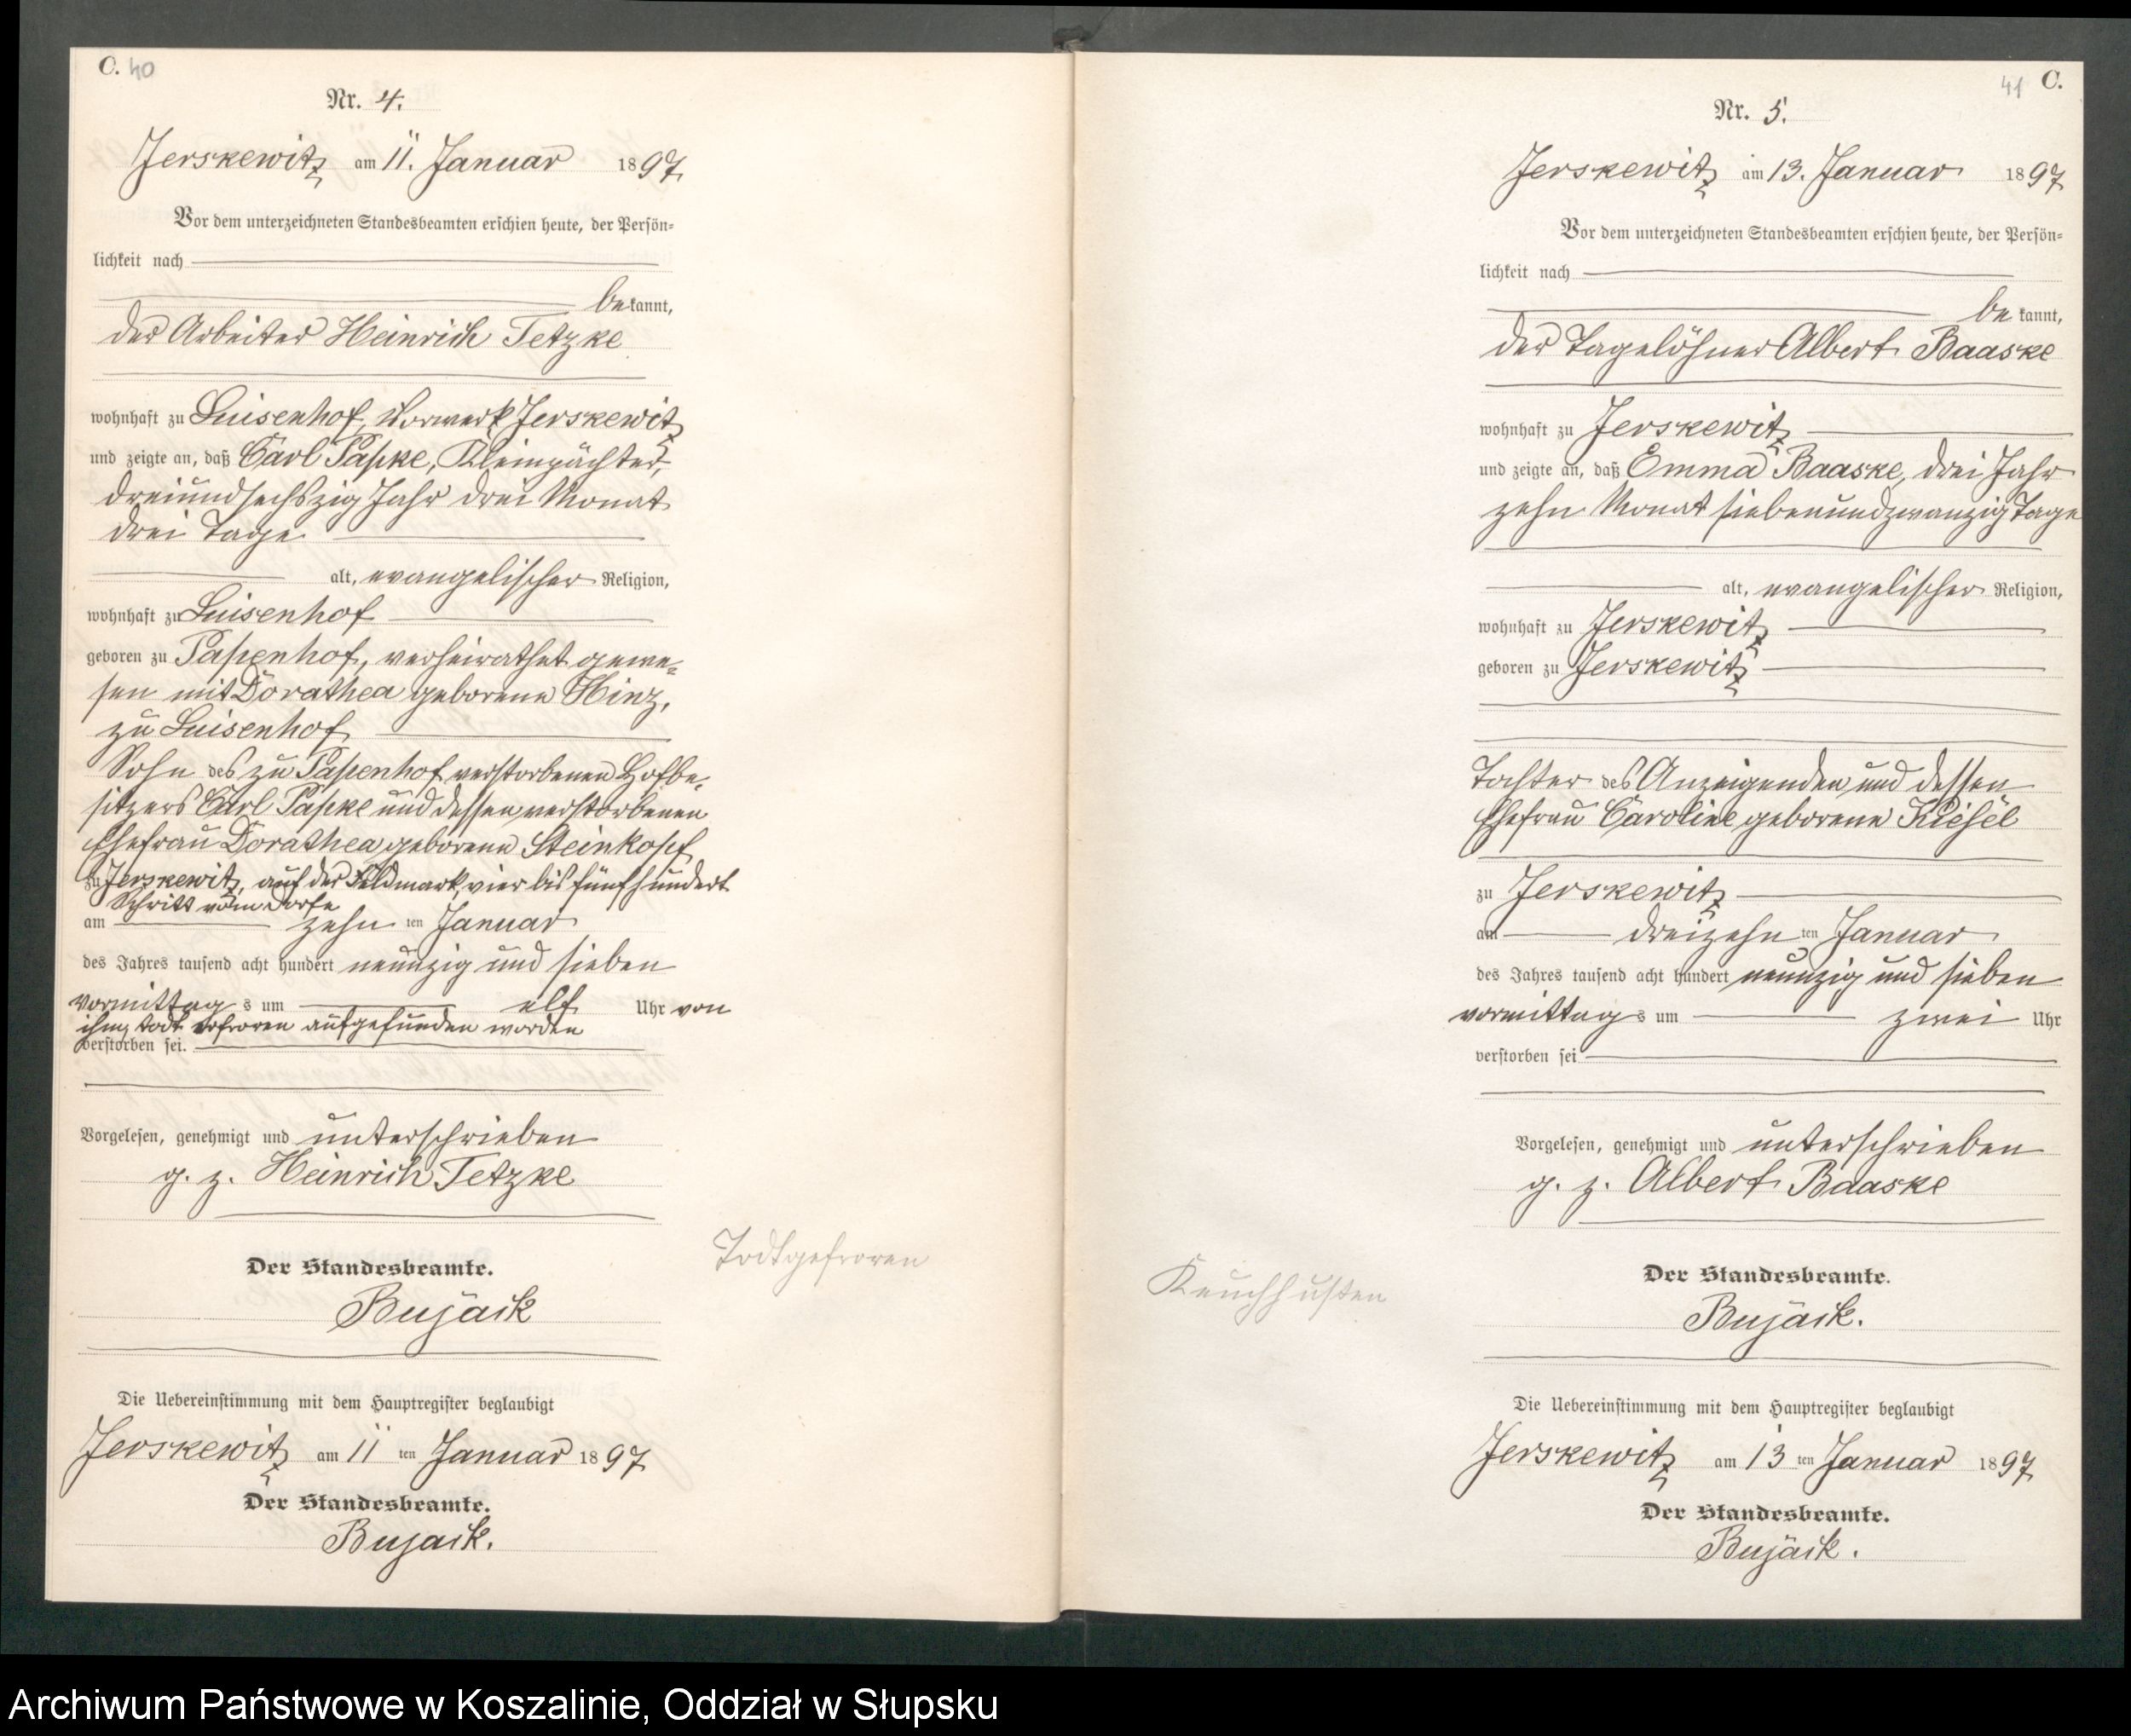 C. 40
Nr. 4.
Jerskewitz am 11. Januar 1897
Vor dem unterzeichneten Standesbeamten erschien heute, der Persön-
lichkeit nach
bekannt,
der Arbeiter Heinrich Tetzke
wohnhaft zu Luisenhof, Vorwerk Jerskewitz
und zeigte an, daß Carl Papke, Kleinpächter,
dreiundsechszig Jahr drei Monat
drei Tage
alt, evangelischer Religion,
wohnhaft zu Luisenhof
geboren zu Papenhof, verheirathet gewe-
sen mit Dorathea geborene Hinz,
zu Luisenhof
Sohn des zu Papenhof verstorbenen Hofbe-
sitzers Carl Papke und dessen verstorbenen
Ehefrau Dorathea geborene Steinkopf
zu Jerskewitz, auf der Feldmark, vier bis fünfhundert
Schritt vom Dorfe
am zehn ten Januar
des Jahres tausend acht hundert neunzig und sieben
Vormittags um elf Uhr von
ihm todt erfroren aufgefunden worden
verstorben sei.
Vorgelesen, genehmigt und unterschrieben
g. z. Heinrich Tetzke
Der Standesbeamte.
Bujack
Todtgefroren
Die Uebereinstimmung mit dem Hauptregister beglaubigt
Jerskewitz am 11 ten Januar 1897
Der Standesbeamte.
Bujack.
41 C.
Nr. 5.
Jerskewitz am 13. Januar 1897
Vor dem unterzeichneten Standesbeamten erschien heute, der Persön-
lichkeit nach
bekannt,
der Tagelöhner Albert Baaske
wohnhaft zu Jerskewitz
und zeigte an, daß Emma Baaske, drei Jahr
zehn Monat siebenundzwanzig Tage
alt, evangelischer Religion,
wohnhaft zu Jerskewitz
geboren zu Jerskewitz
Tochter des Anzeigenden und dessen
Ehefrau Caroline geborene Kiesel
zu Jerskewitz
am dreizehn ten Januar
des Jahres tausend acht hundert neunzig und sieben
vormittags um zwei Uhr
verstorben sei
Vorgelesen, genehmigt und unterschrieben
g. z. Albert Baaske
Keuchhusten
Der Standesbeamte.
Bujack.
Die Uebereinstimmung mit dem Hauptregister beglaubigt
Jerskewitz am 13 ten Januar 1897
Der Standesbeamte.
Bujack.
Archiwum Państwowe w Koszalinie, Oddział w Słupsku